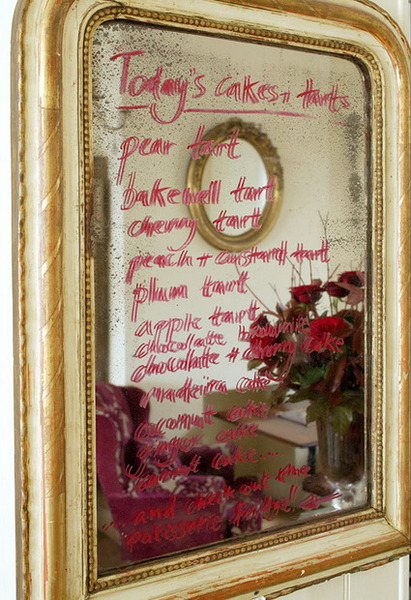 Today's cakes + tarts
pear tart
bakewell tart
cherry tart
peach + custard tart
plum tart
apple tart
chocolate brownie
chocolate + cherry cake
madeira cake
coconut cake
ginger cake
carrot cake...
... and check out the
patisserie for more!